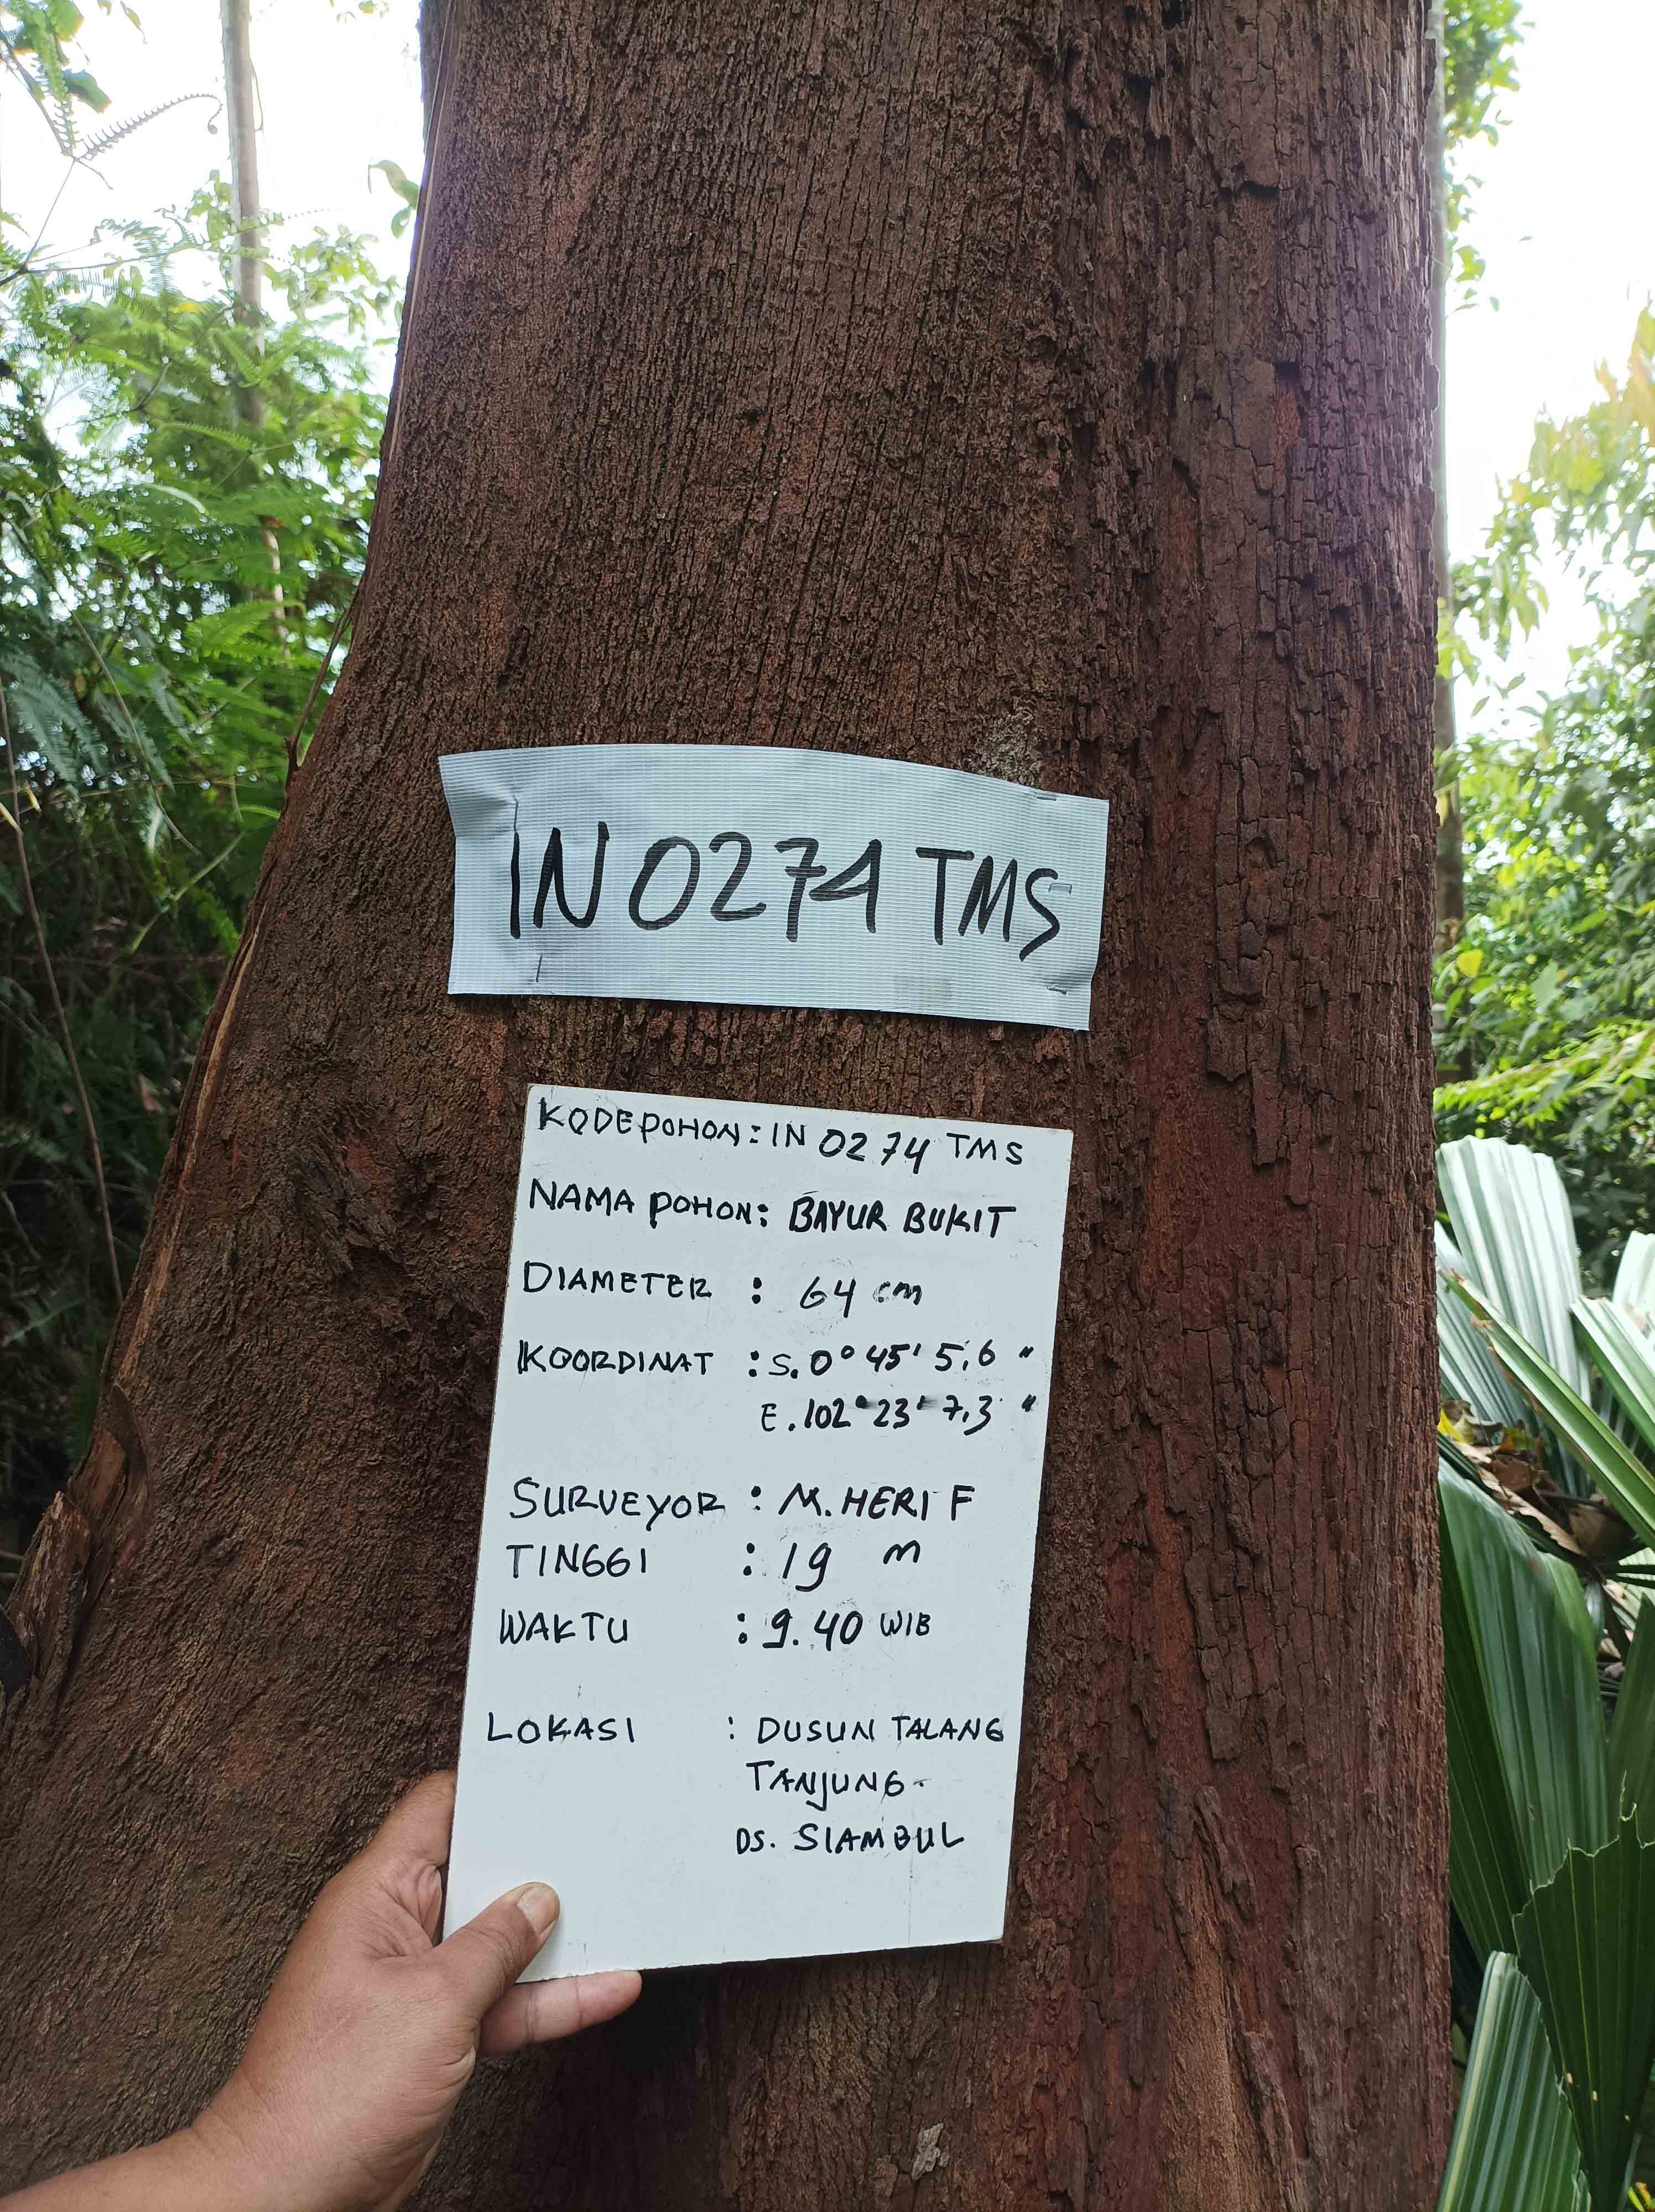 IN 0274 TMS
KODE POHON : IN 0274 TMS
NAMA POHON : BAYUR BUKIT
DIAMETER : 64 cm
KOORDINAT : S. 0° 45' 5,6 "
E. 102° 23' 7,3 "
SURVEYOR : M. HERI F
TINGGI : 19 m
WAKTU : 9.40 WIB
LOKASI : DUSUN TALANG
TANJUNG-
DS. SIAMBUL